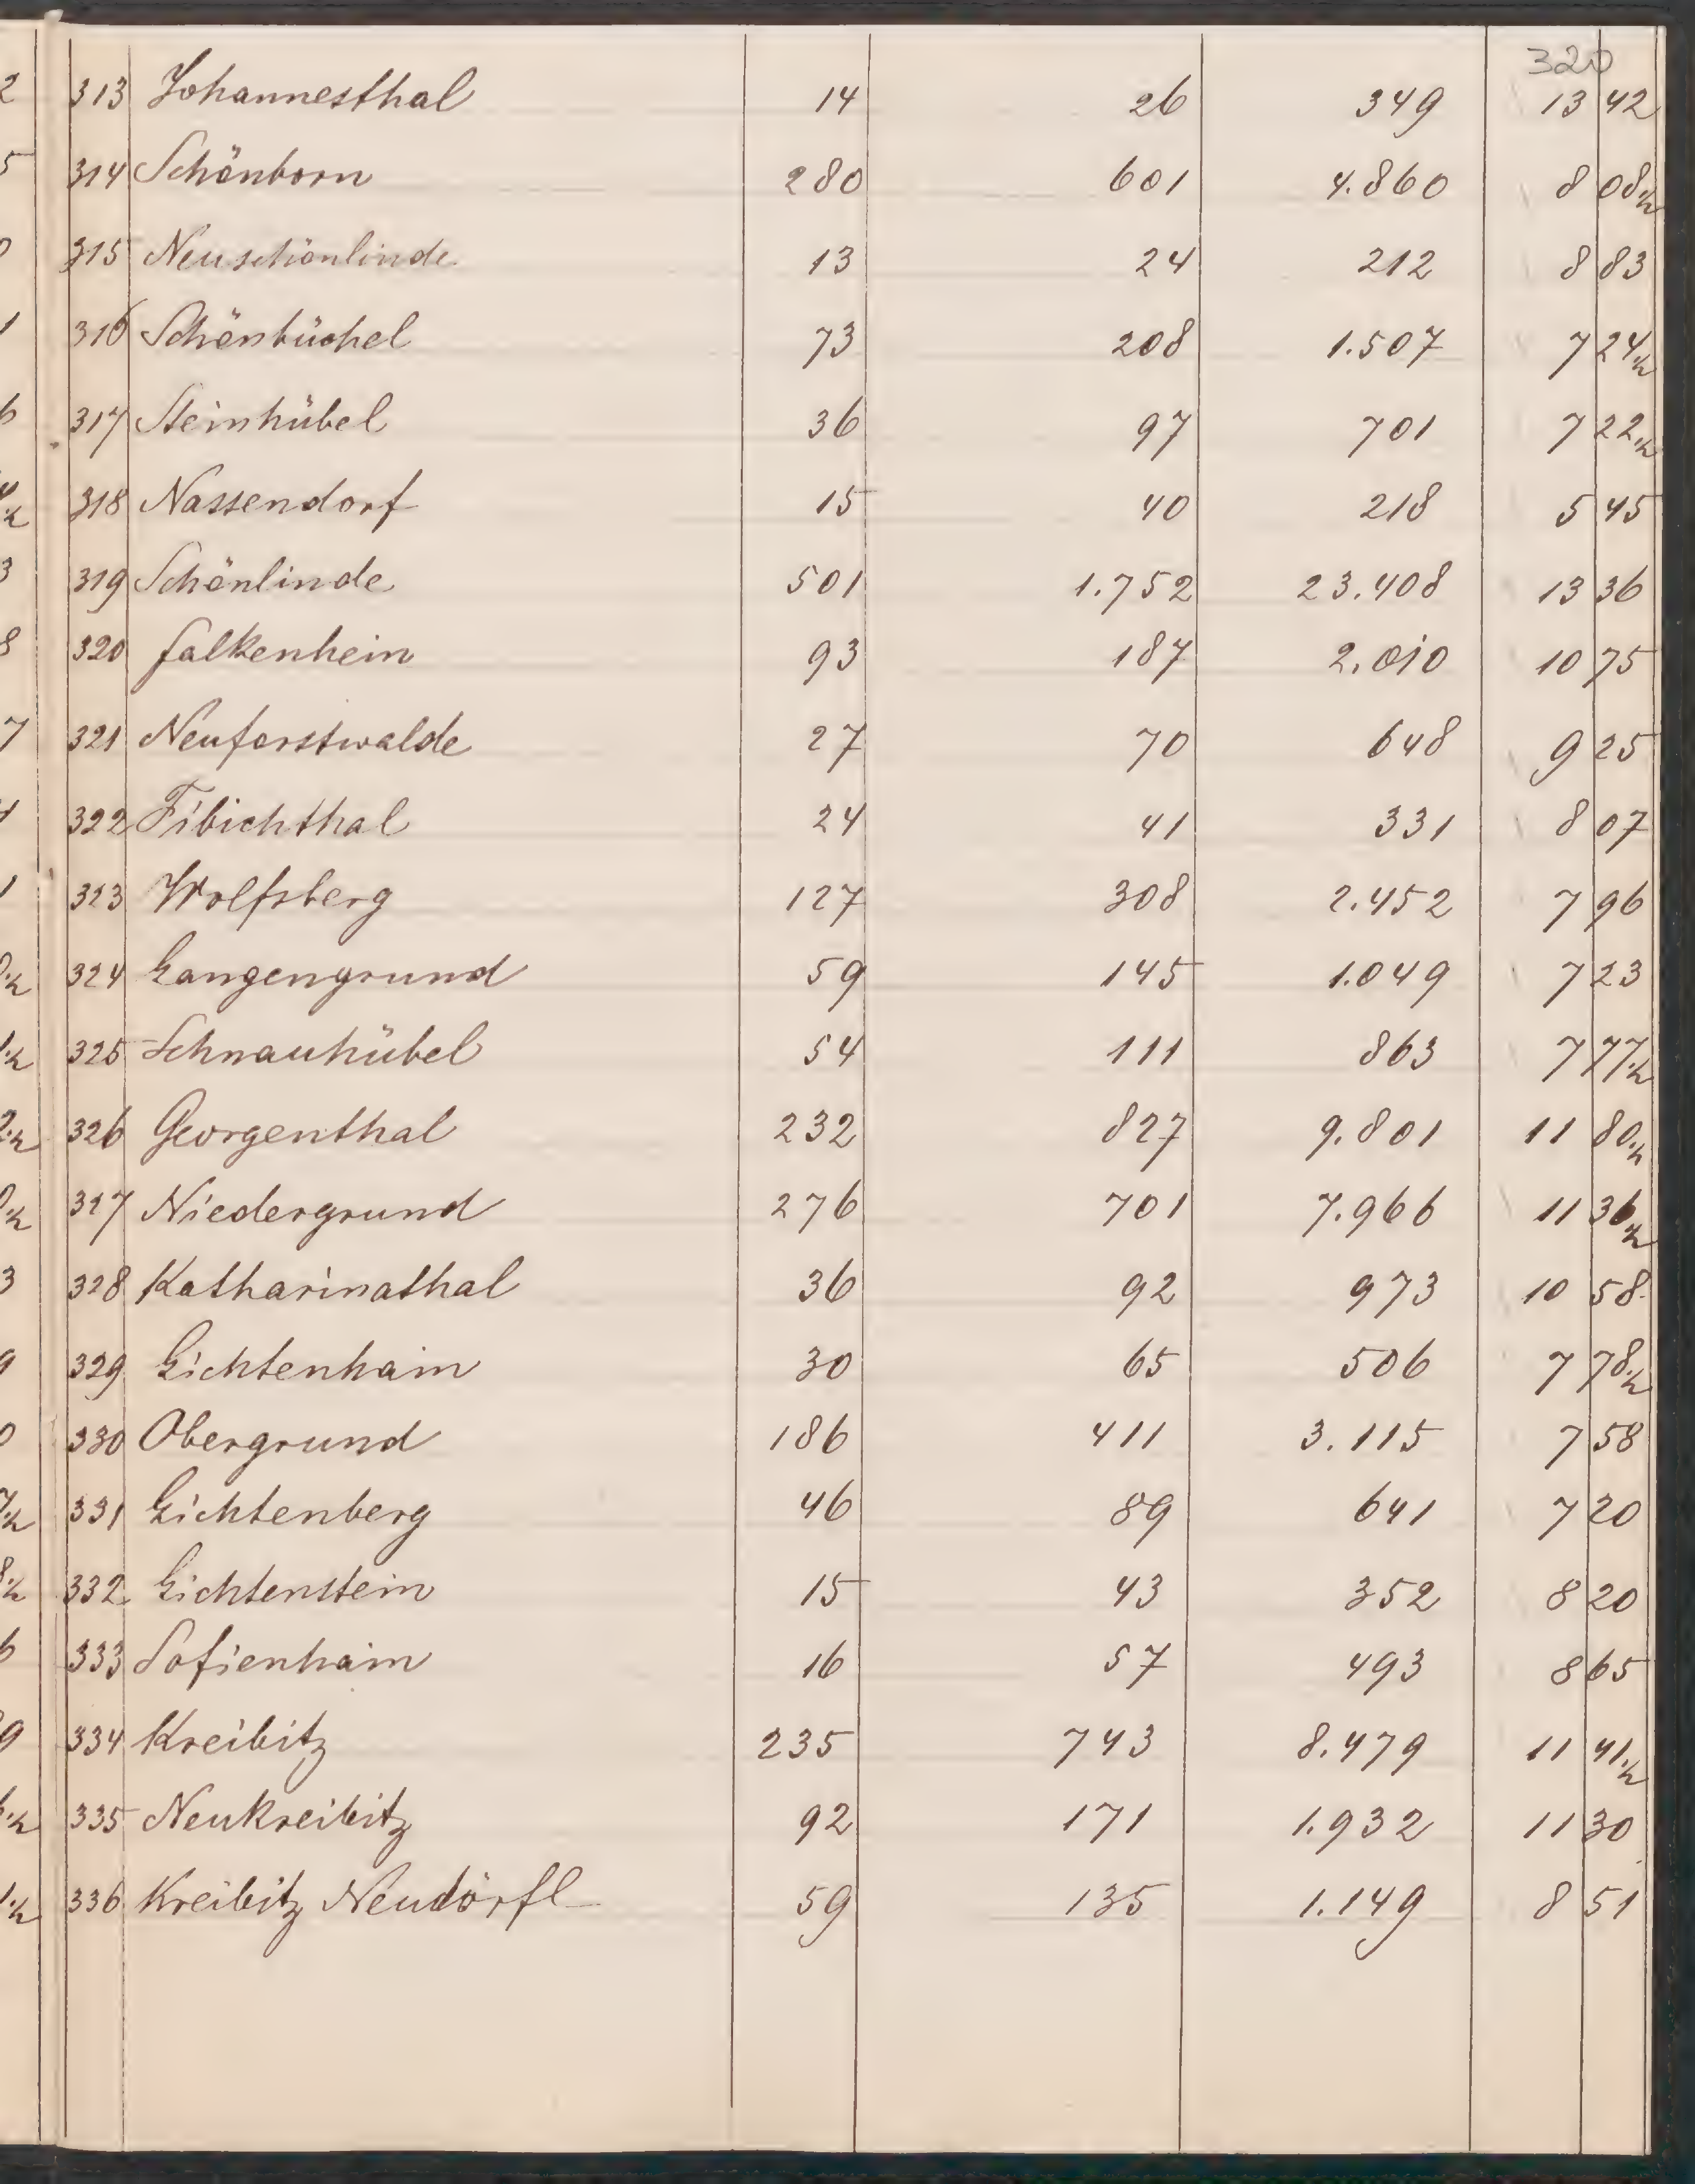 320
313 Johannesthal 14 26 349 13 42
314 Schönborn 280 601 4.860 8 08 ½
315 Neuschönlinde 13 24 212 8 83
316 Schönbüchel 73 208 1.507 7 24 ½
317 Steinhübel 36 97 701 7 22 ½
318 Nassendorf 15 40 218 5 45
319 Schönlinde 501 1.752 23.408 13 36
320 Falkenhein 93 187 2.010 10 75
321 Neuforstwalde 27 70 648 9 25
322 Fibichthal 24 41 331 8 07
323 Wolfsberg 127 308 2.452 7 96
324 Langengrund 59 145 1.049 7 23
325 Schnauhübel 54 111 863 7 77 ½
326 Georgenthal 232 827 9.801 11 80 ½
327 Niedergrund 276 701 7.966 11 36 ½
328 Katharinathal 36 92 973 10 58
329 Lichtenhain 30 65 506 7 78 ½
330 Obergrund 186 411 3.115 7 58
331 Lichtenberg 46 89 641 7 20
332 Lichtenstein 15 43 352 8 20
333 Sofienhain 16 57 493 8 65
334 Kreibitz 235 743 8.479 11 41 ½
335 Neukreibitz 92 171 1.932 11 30
336 Kreibitz Neudörfl 59 135 1.149 8 51